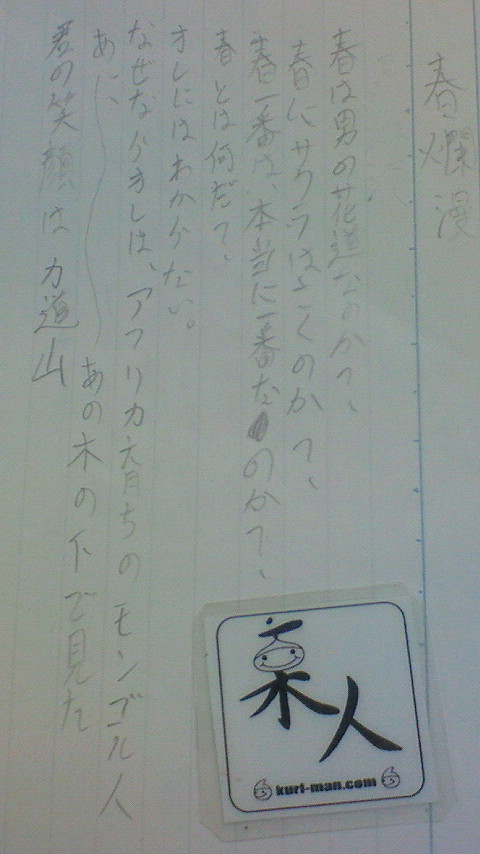 春爛漫
春は男の花道なのか？、
春にサクラはさくのか？、
春一番は、本当に一番なのか？、
春とは何だ？、
オレにはわからない。
なぜならオレは、アフリカ育ちのモンゴル人
あに〜あの木の下で見た
君の笑顔は力道山
栗人
kuri-man.com